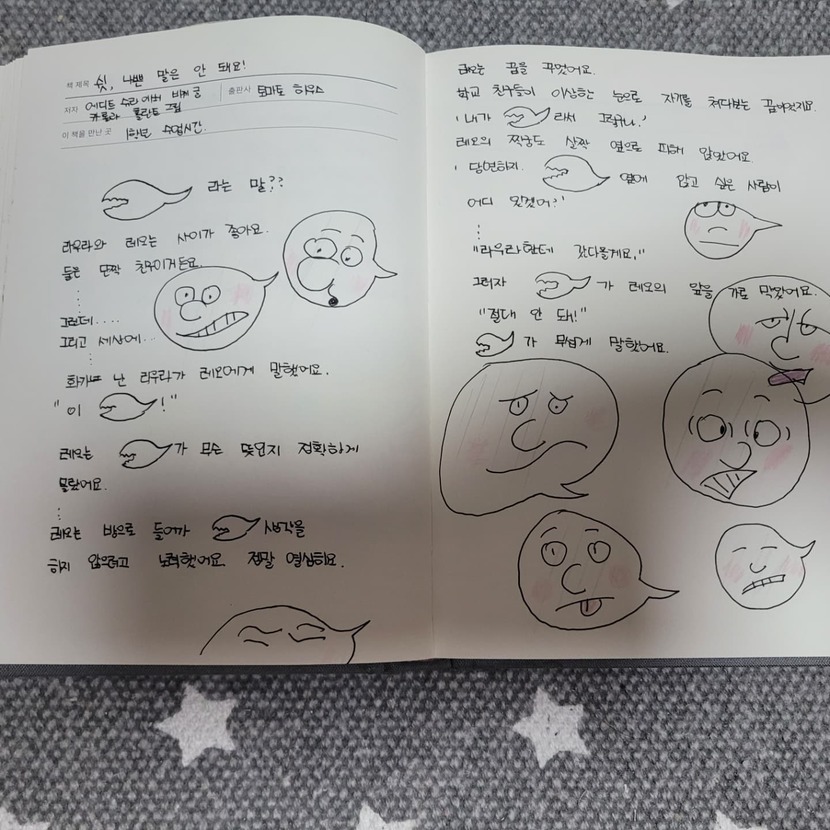 책 제목 쉿, 나쁜 말은 안 돼요!
저자 에디트 슈라이버 비케 글
카롤라 홀란트 그림
출판사 토마토 하우스
이 책을 만난 곳 1학년 수업시간.
라는 말??
라우라와 레오는 사이가 좋아요.
둘은 단짝 친구이거든요.
그런데....
그리고 세상에...
화가 난 라우라가 레오에게 말했어요.
"이 !"
레오는 가 무슨 뜻인지 정확하게
몰랐어요.
레오는 방으로 들어가 생각을
하지 않으려고 노력했어요. 정말 열심히요.
레오는 꿈을 꾸었어요.
학교 친구들이 이상한 눈으로 자기를 쳐다보는 꿈이었지요.
'내가 라서 그렇구나.'
레오의 짝궁도 살짝 옆으로 피해 앉았어요.
'당연하지. 옆에 앉고 싶은 사람이
어디 있겠어?'
"라우라한테 갔다올게요."
그러자 가 레오의 앞을 가로 막았어요.
"절대 안 돼!"
가 무섭게 말했어요.